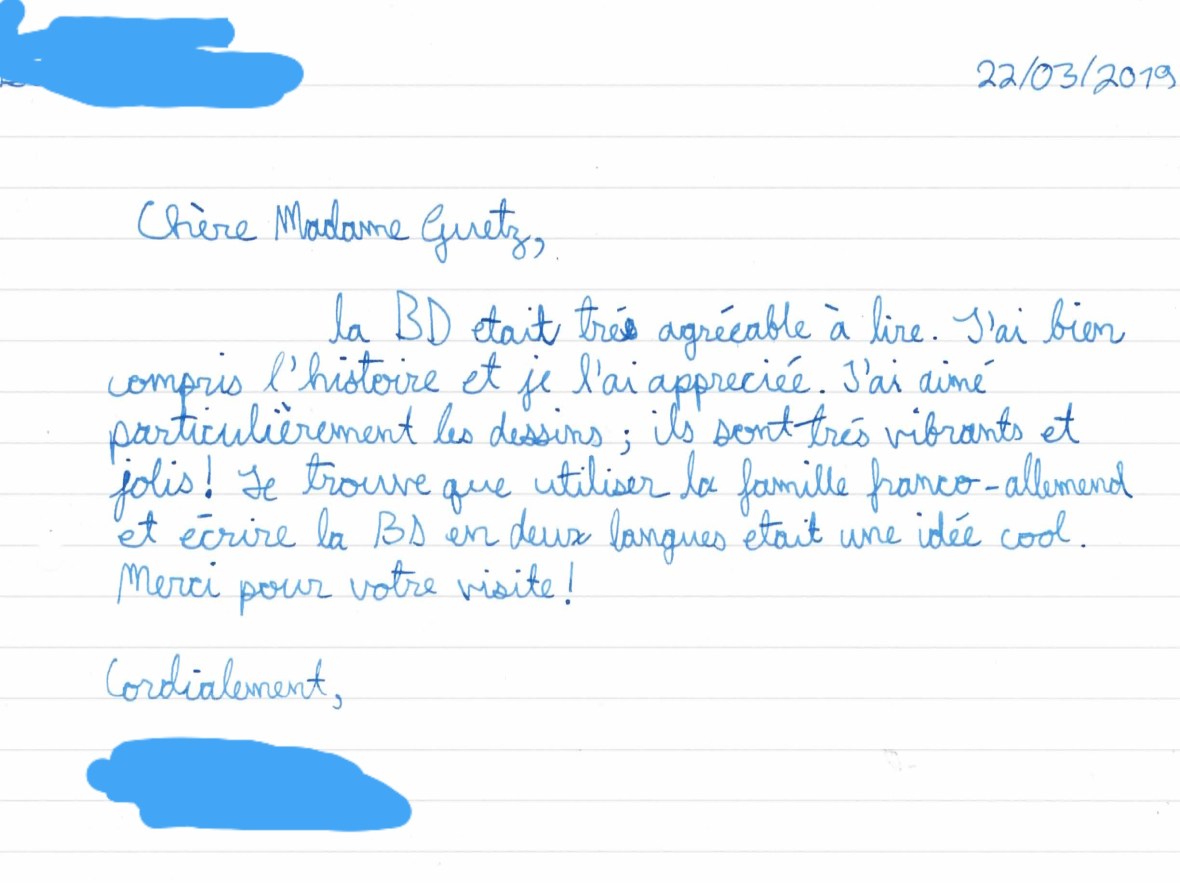 22/03/2019
Chère Madame Guetz,
la BD etait trés agréeable à lire. J'ai bien
compris l'histoire et je l'ai appreciée. J'ai aimé
particulièrement les dessins ; ils sont trés vibrants et
jolis! Je trouve que utiliser la famille franco-allemend
et écrire la BD en deux langues etait une idée cool.
Merci pour votre visite!
Cordialement,